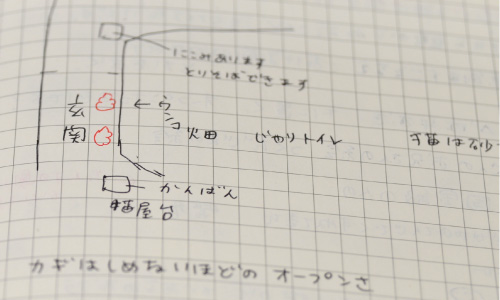 にこみあります
とりそばできます
玄関
← ウンコ
畑 じゃりトイレ 猫は砂
かんばん
猫屋台
カギはしめないほどの オープンさ